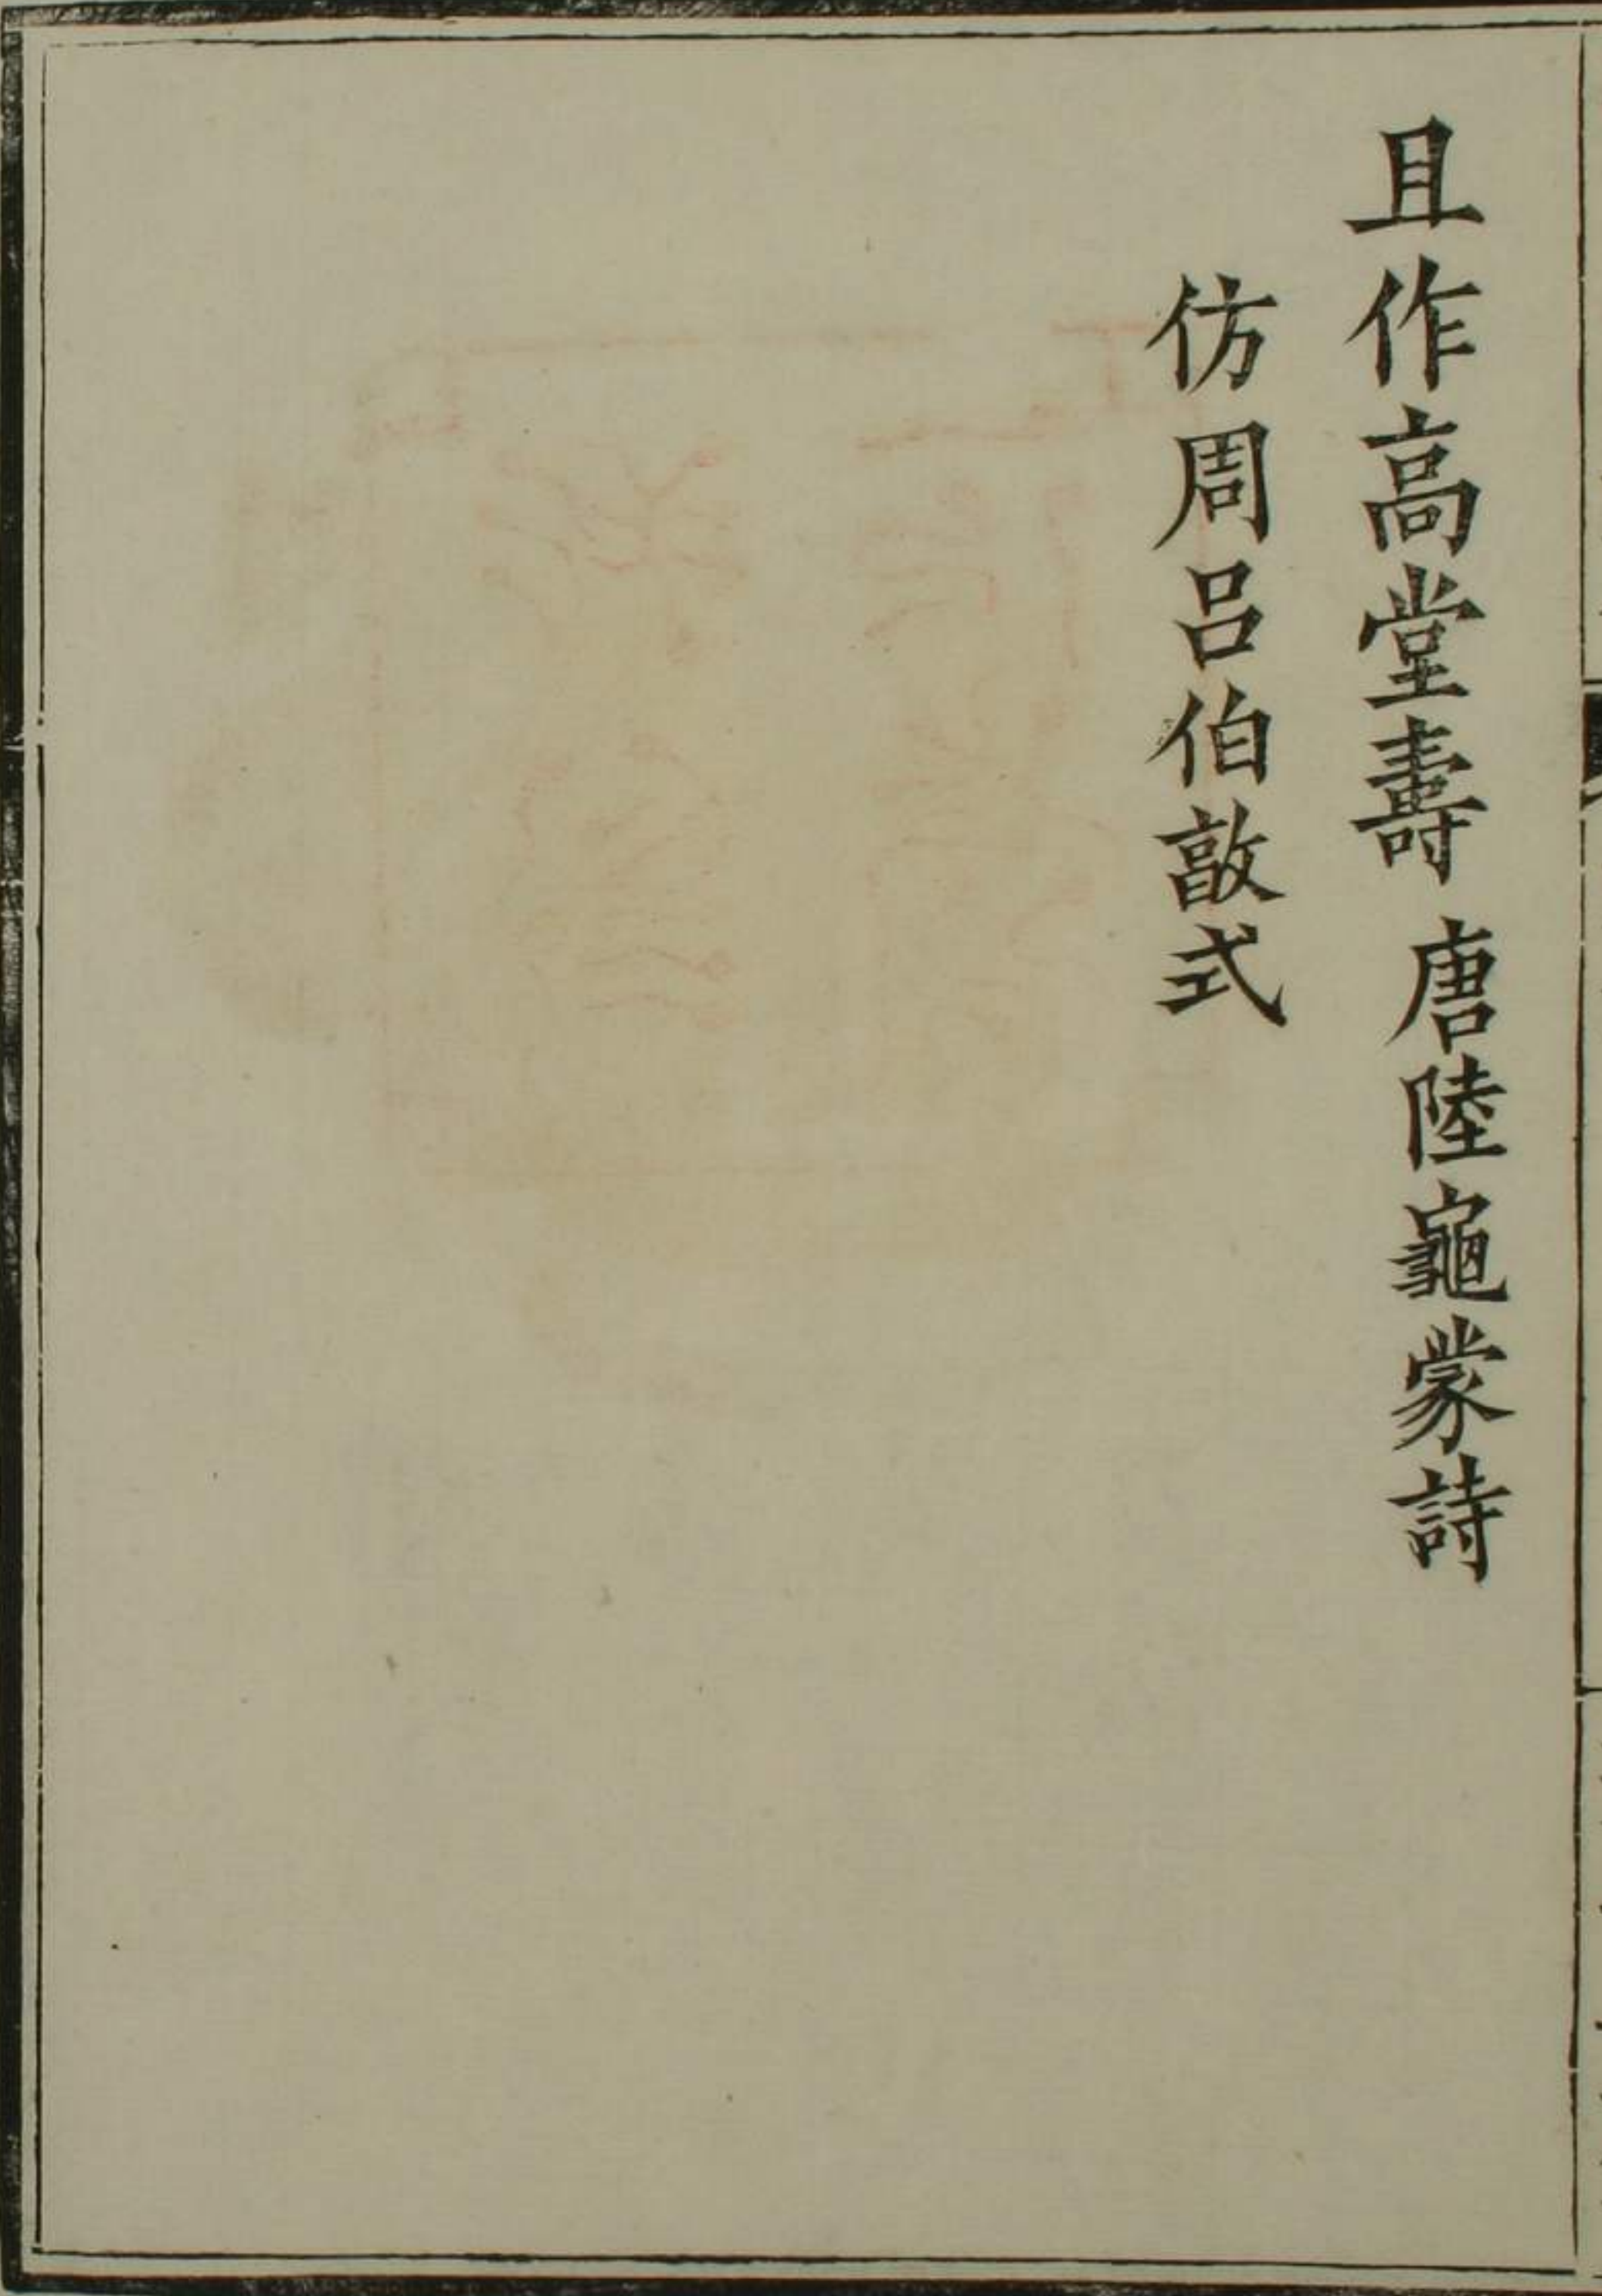 且作高堂壽 唐陸龜蒙詩
仿周呂伯敦式